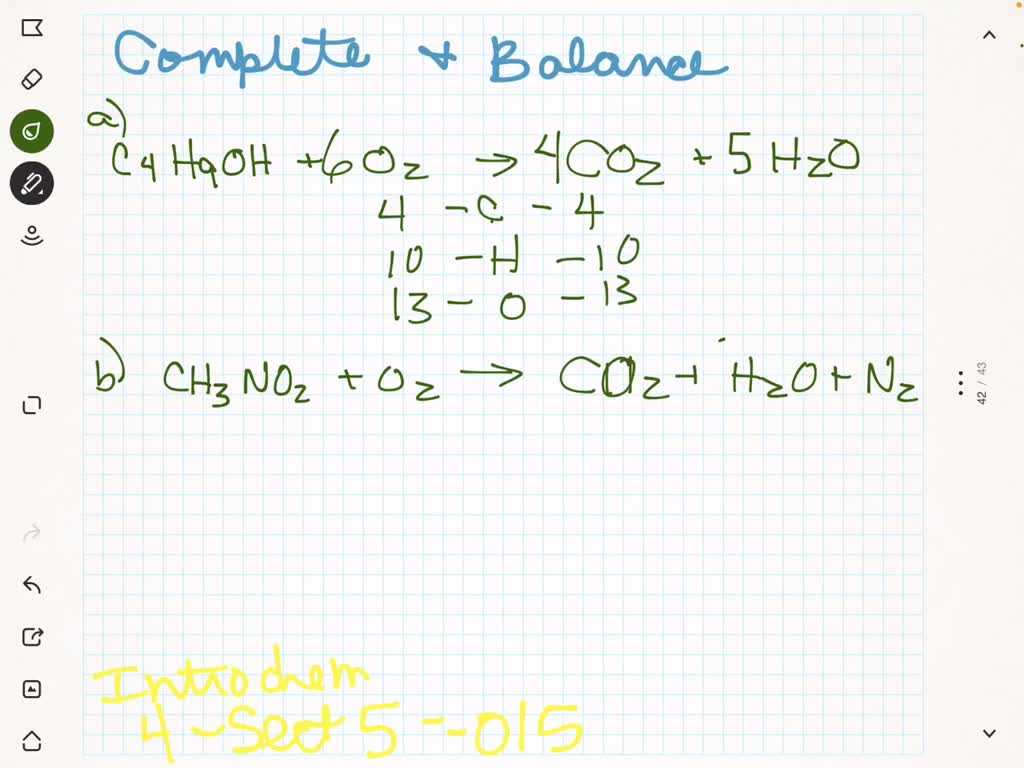 Complete & Balance
a)
C4H9OH + 6O2 → 4CO2 + 5H2O
4 - C - 4
10 - H - 10
13 - O - 13
b) CH3NO2 + O2 → CO2 + H2O + N2
42 / 43
Introchem
4 - Sect 5 - -015